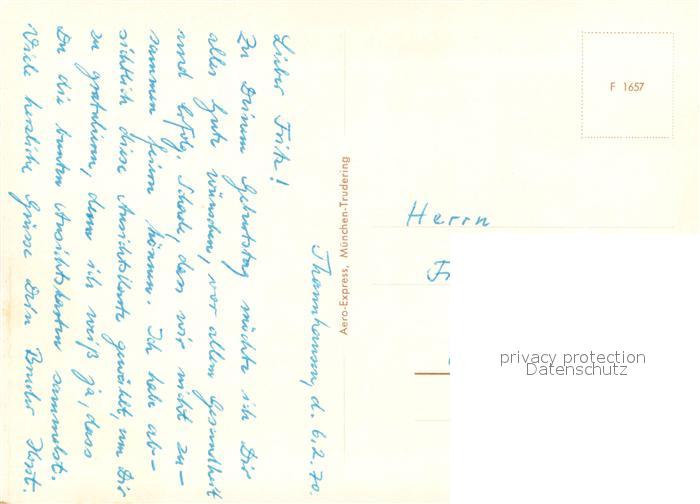 Thannhausen, d. 6.2.70.
Lieber Fritz!
Zu Deinem Geburtstag möchte ich Dir
alles Gute wünschen, vor allem Gesundheit
und Erfolg. Schade, dass wir nicht zu-
sammen feiern können. Ich habe ab-
sichtlich diese Ansichtskarte gewählt, um Dir
zu gratulieren, denn ich weiß ja, dass
Du die bunten Ansichtskarten sammelst.
Viele herzliche Grüsse Dein Bruder Horst.
Aero-Express, München-Trudering
F 1657
Herrn
privacy protection
Datenschutz